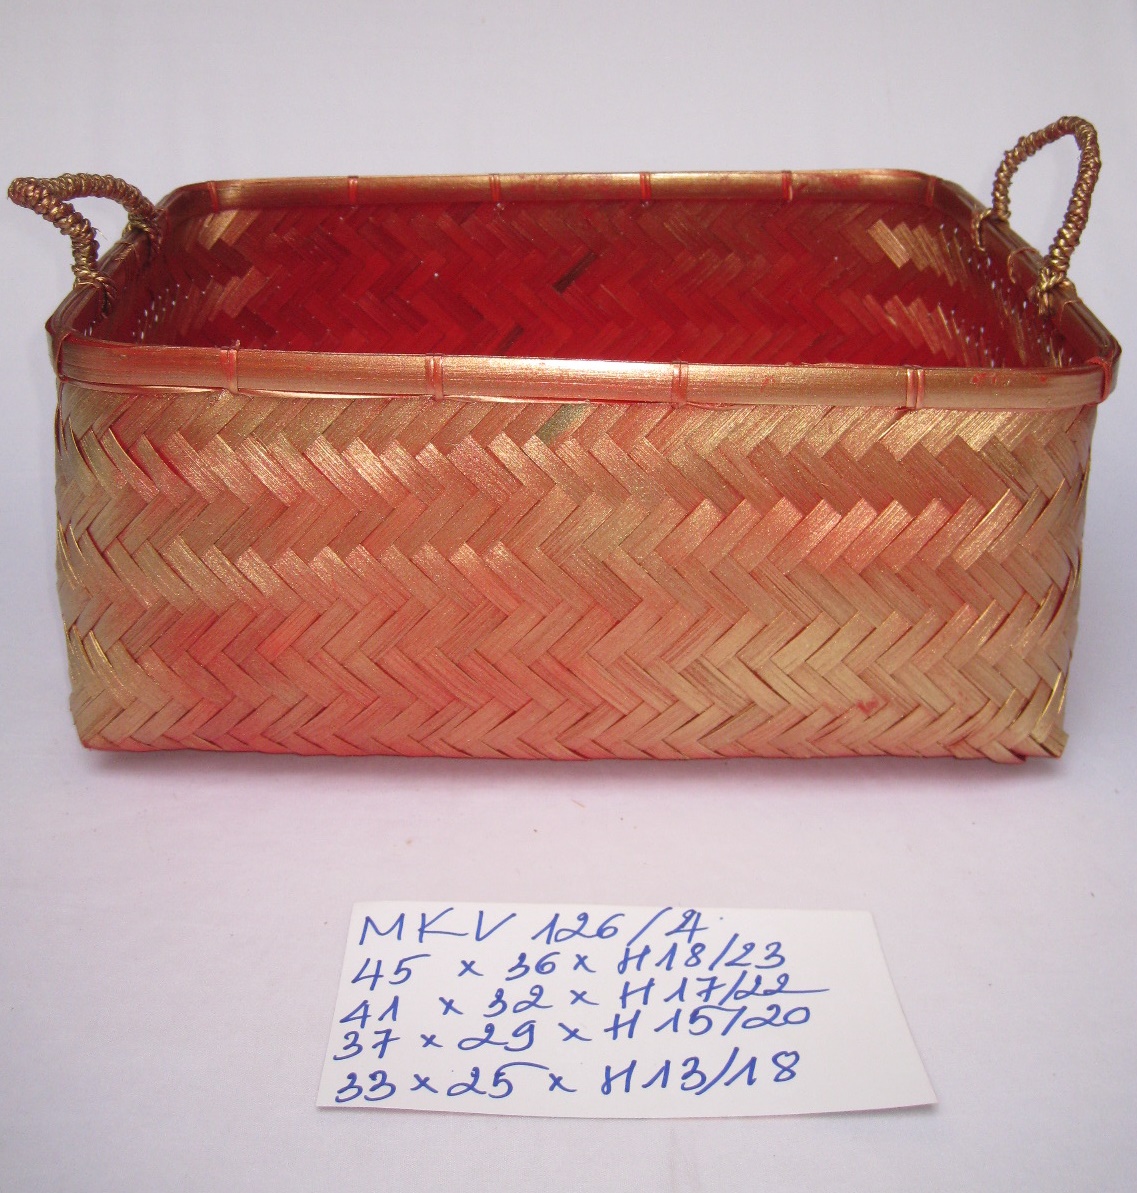 MKV 126/4
45 x 36 x H18/23
41 x 32 x H17/22
37 x 29 x H15/20
33 x 25 x H13/18